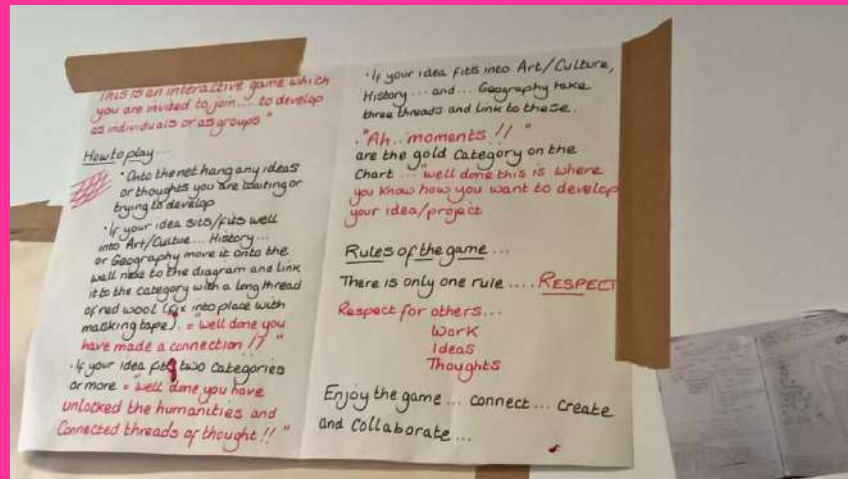 This is an interactive game which
you are invited to join.... to develop
as individuals or as groups "
How to play...
• Onto the net hang any ideas
or thoughts you are waiting or
trying to develop
• If your idea sits/fits well
into Art/Culture... History...
or Geography move it onto the
wall next to the diagram and link
it to the category with a long thread
of red wool (fix into place with
masking tape). = "well done you
have made a connection !! "
• If your idea fits two categories
or more = "well done you have
unlocked the humanities and
Connected threads of thought !! "
• If your idea fits into Art/Culture,
History... and... Geography take
three threads and link to these.
• "Ah.. moments !! "
are the gold category on the
Chart... "well done this is where
you know how you want to develop
your idea/project
Rules of the game...
There is only one rule .... RESPECT
Respect for others...
Work
Ideas
Thoughts
Enjoy the game... connect... create
and collaborate...